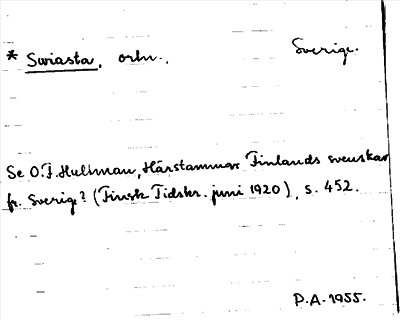 * Swiasta, ortn., Sverige.
Se O.F. Hultman, Härstammar Finlands svenskar
fr. Sverige? (Finsk Tidskr. juni 1920), s. 452.
P.A. 1955.